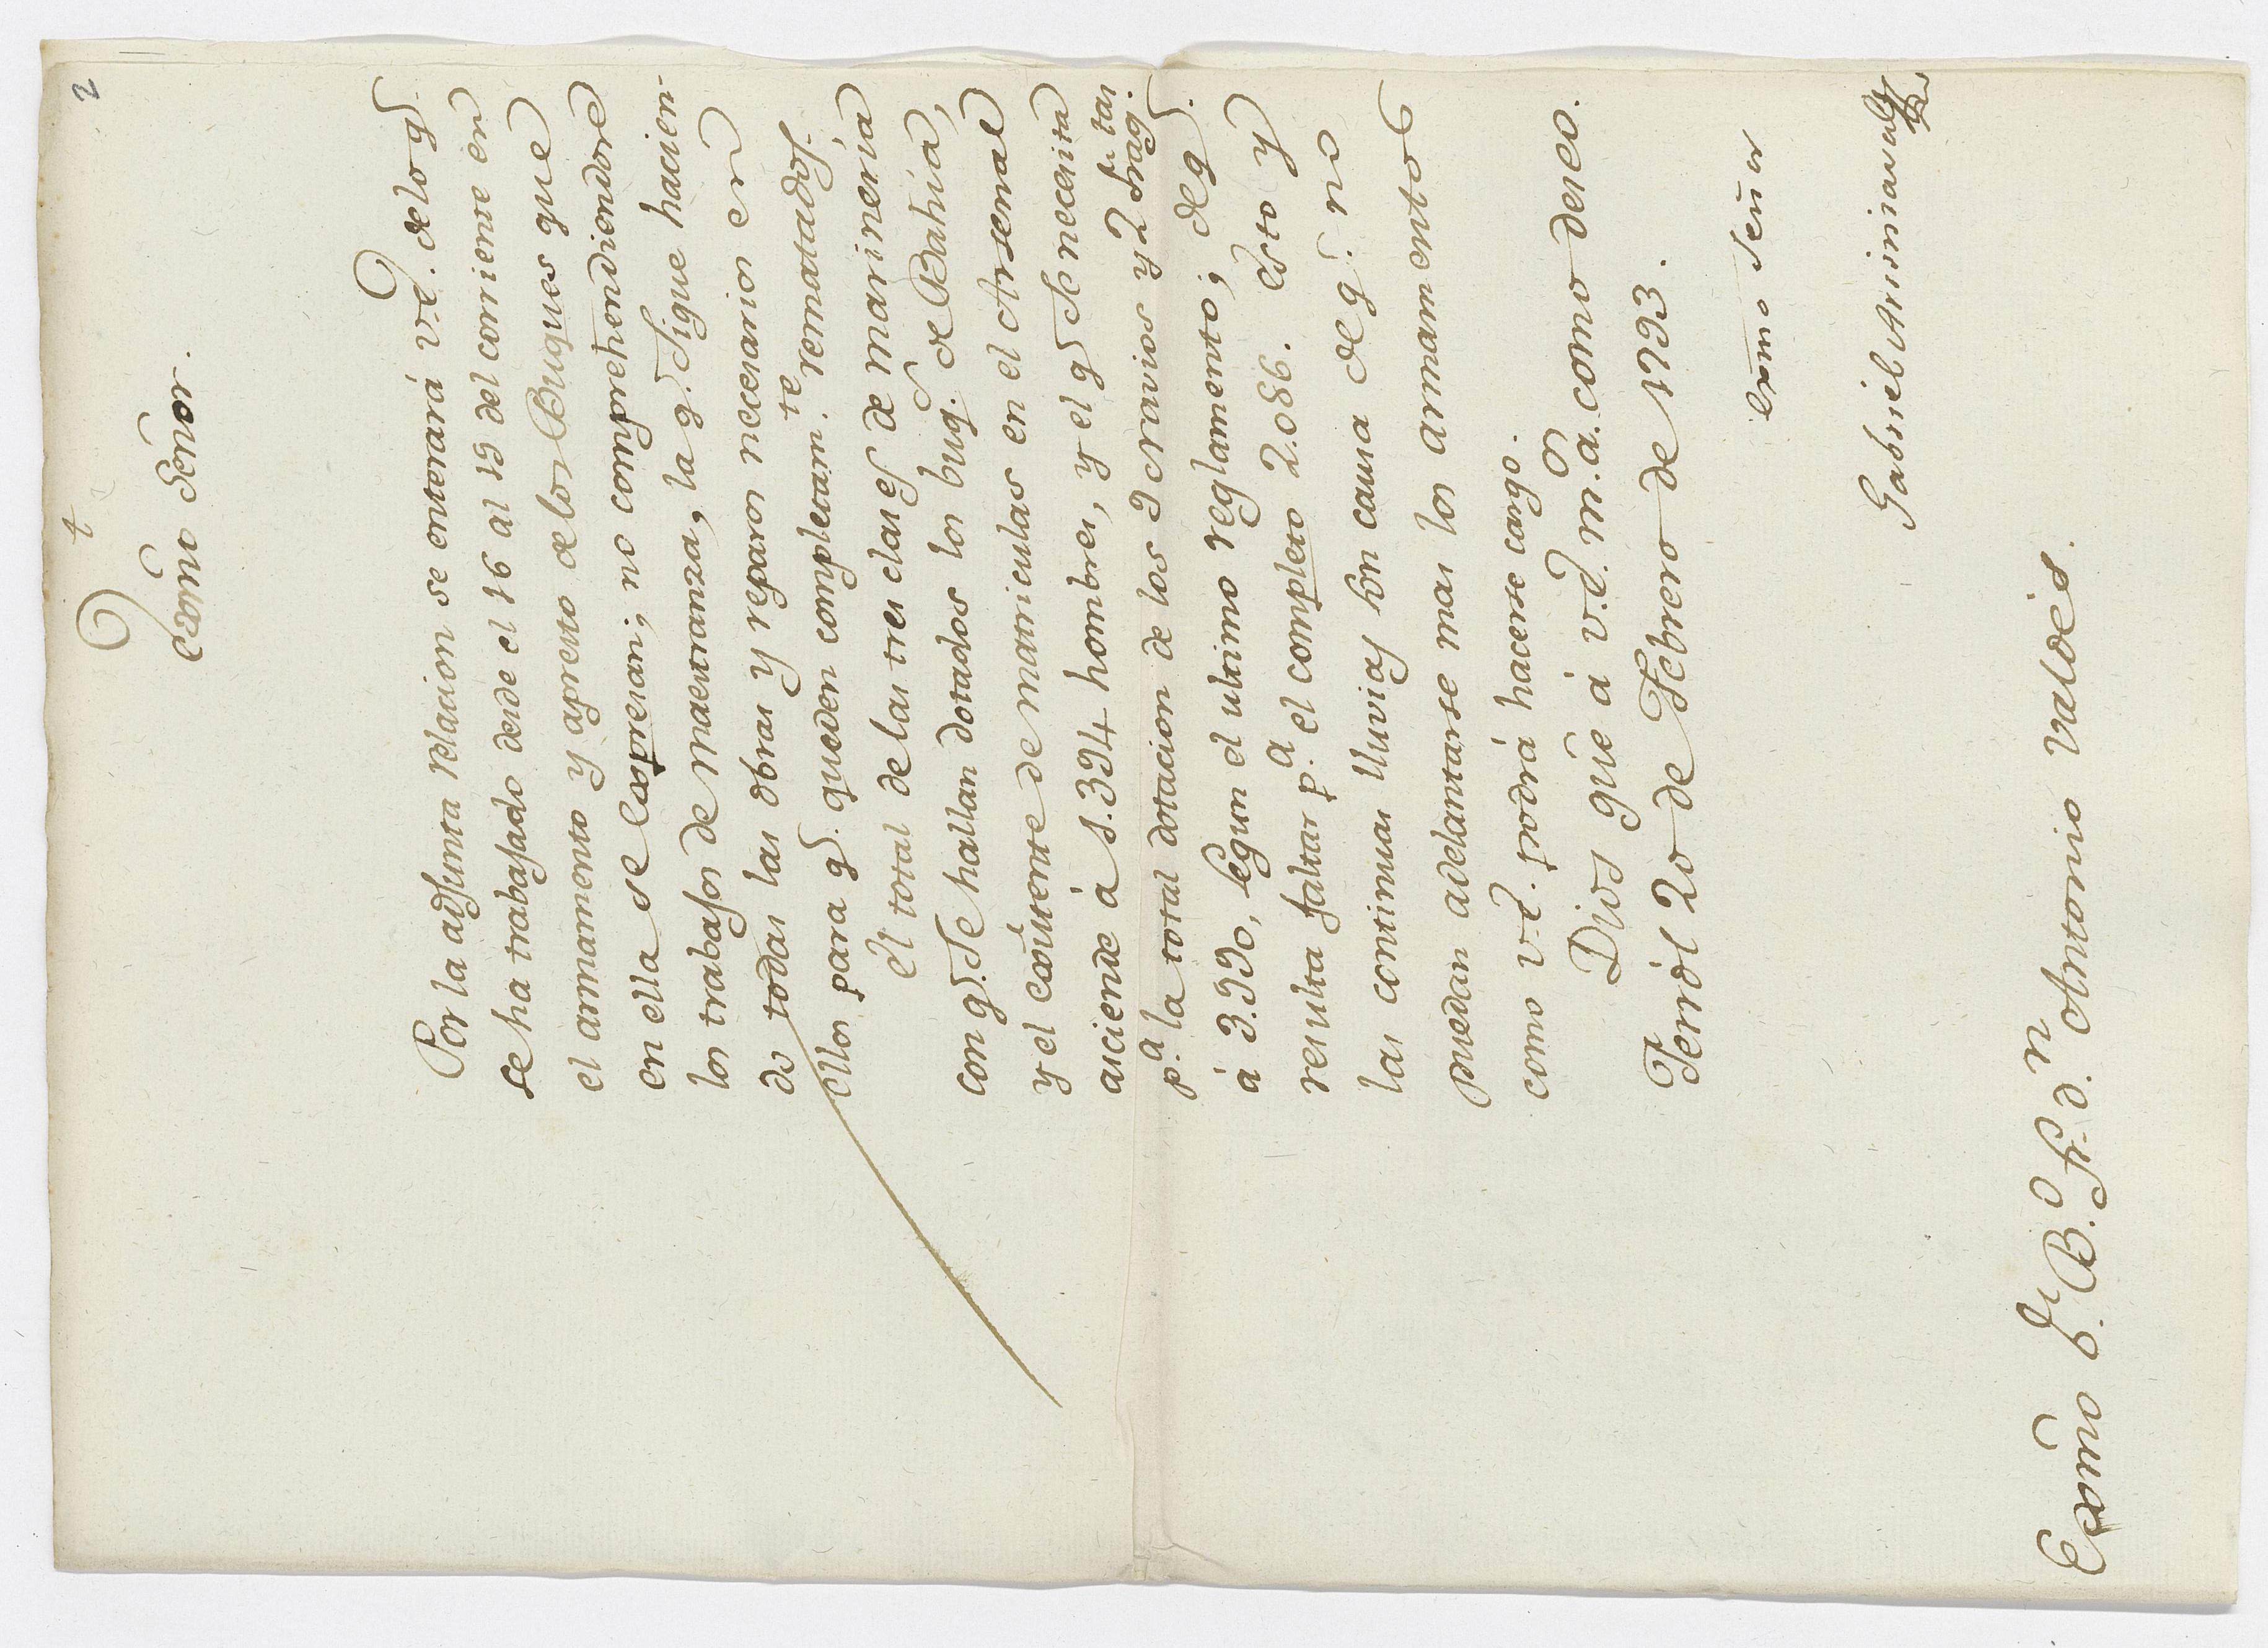 2
t
Exmo Señor.
Por la adjunta relacion se enterará V.E. de lo q.
se ha trabajado desde el 16 al 19 del corriente en
el armamento y apresto de los Buques que
en ella se expresan; no comprehendiendose
los trabajos de maestranza, la q. sigue hacien-
do todas las obras y reparos necesarios en
ellos para q. queden completam.te rematados.
El total de las tres clases de marineria
con q. se hallan dotados los buq.s de Bahía,
y el existente de matriculas en el Arsenal
asciende á 1.394 hombres, y el q. se necesita
p.a la total dotacion de los 9 navios y 2 frag.tas
á 3.990, segun el ultimo reglamento; de q.
resulta faltar p.a el completo 2.086. Esto y
las continuas lluvias son causa de q. no
puedan adelantarse mas los armamentos
como V.E. podrá hacerse cargo.
Dios gue á V.E. m.s a.s como deseo.
Ferrol 20 de Febrero de 1793.
Exmo Señor
Gabriel Aristizaval
Exmo S.r B.o Fr. d.n Antonio Valdés.